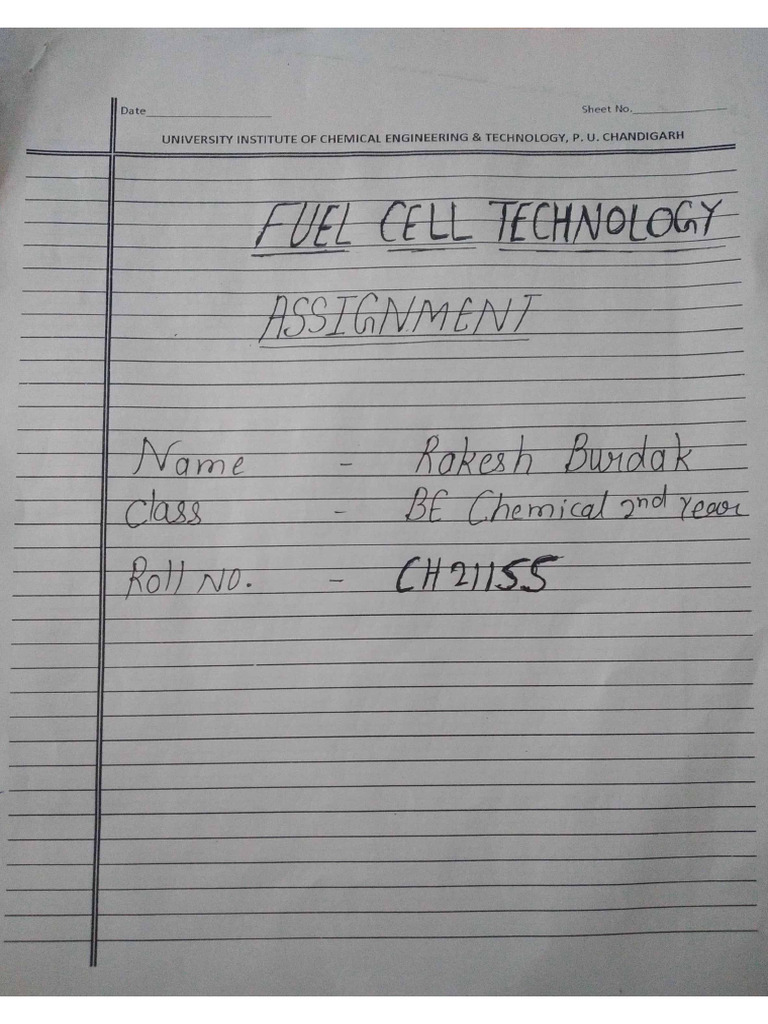 Date Sheet No.
UNIVERSITY INSTITUTE OF CHEMICAL ENGINEERING & TECHNOLOGY, P. U. CHANDIGARH
FUEL CELL TECHNOLOGY
ASSIGNMENT
Name - Rakesh Burdak
Class - BE Chemical 2nd Year
Roll NO. - CH21155